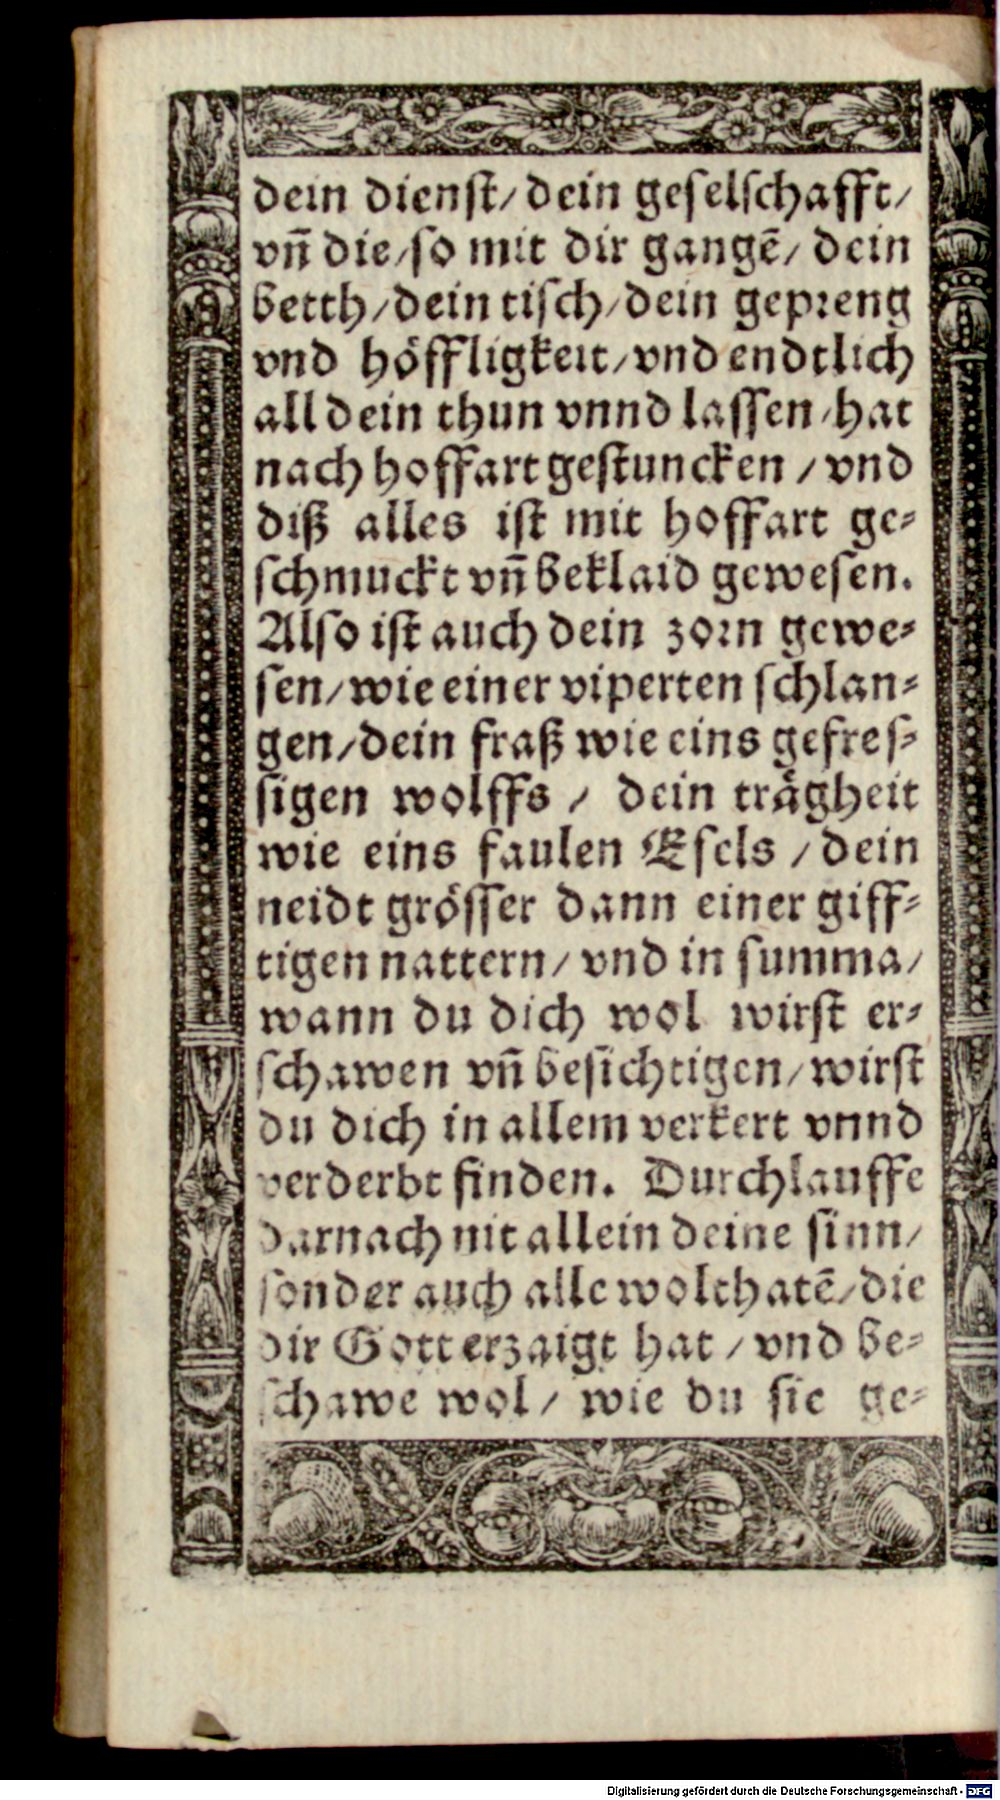 dein dienst/ dein geselschafft/
vñ die/ so mit dir gangẽ/ dein
betth/ dein tisch/ dein gepreng
vnd höffligkeit/ vnd endtlich
all dein thun vnnd lassen/ hat
nach hoffart gestuncken / vnd
diß alles ist mit hoffart ge-
schmuckt vñ beklaid gewesen.
Also ist auch dein zorn gewe-
sen/ wie einer viperten schlan-
gen/ dein fraß wie eins gefres-
sigen wolffs / dein trägheit
wie eins faulen Esels / dein
neidt grösser dann einer giff-
tigen nattern/ vnd in summa/
wann du dich wol wirst er-
schawen vñ besichtigen/ wirst
du dich in allem verkert vnnd
verderbt finden. Durchlauffe
darnach nit allein deine sinn/
sonder auch alle wolthatẽ/ die
dir Gott erzaigt hat / vnd be-
schawe wol/ wie du sie ge-
Digitalisierung gefördert durch die Deutsche Forschungsgemeinschaft - DFG